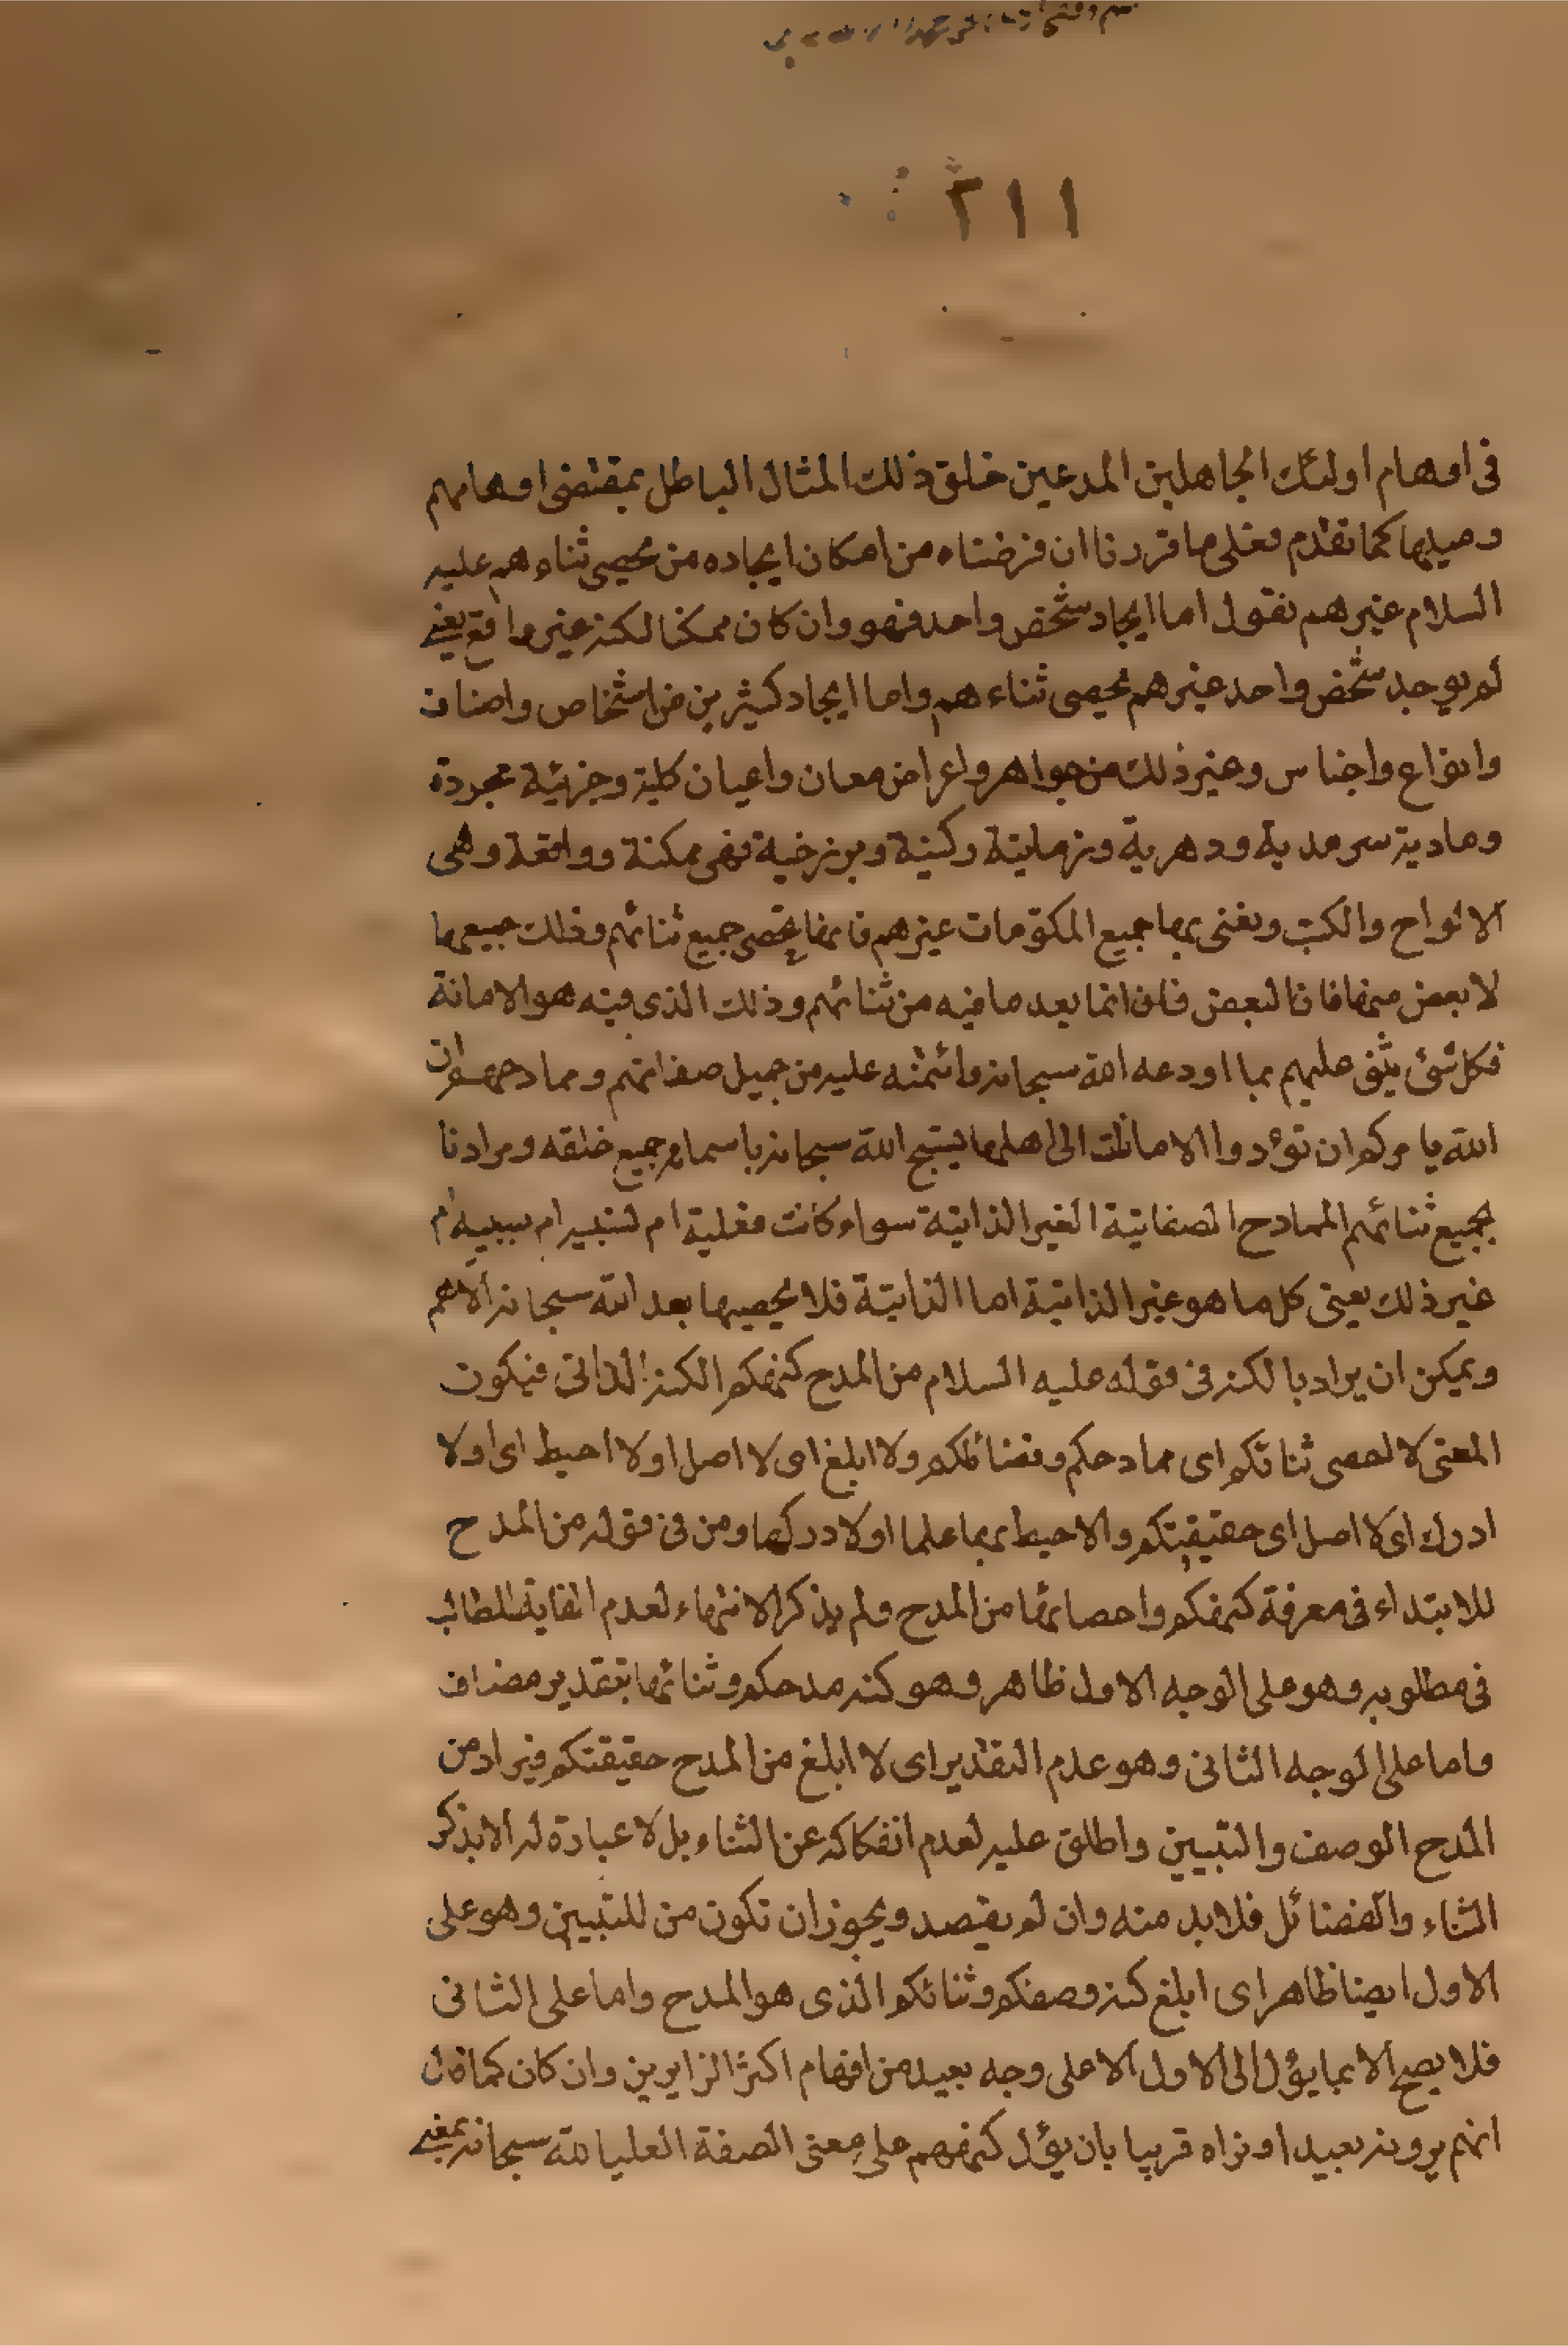 ٢١١
فى اوهام اولئك الجاهلين المدعين خلق ذلك المثال الباطل بمقتضى اوهامهم
وميلها كما تقدم فعلى ما قررنا ان فرضناه من امكان ايجاده من يحصى ثناء هم عليه
السلام غيرهم نقول اما ايجاد شخص واحد فهو وان كان ممكنا لكنه غير واقع يعنى
لم يوجد شخص واحد غيرهم يحصى ثناء هم واما ايجاد كثيرين من اشخاص واصناف
وانواع واجناس وغير ذلك من جواهر واعراض معان واعيان كلية وجزئية مجردة
ومادية سرمدية ودهرية وزمانية ركنية وبرزخية فهى ممكنة وواقعة وهى
الالواح والكتب ونعنى بها جميع المكوّمات غيرهم فانها تحصى جميع ثنائهم وذلك جميعها
لا بعض منها فان البعض فان انما يعد ما فيه من ثنائهم وذلك الذى فيه هو الامانة
فكل شئ يثنى عليهم بما اودعه الله سبحانه وائتمنه عليه من جميل صفاتهم وممادحهم ان
الله يامركم ان تؤدوا الامانات الى اهلها يسبح الله سبحانه باسمائه جميع خلقه ومرادنا
بجميع ثنائهم الممادح الصفاتية الغير الذاتية سواء كانت فعلية ام نسبية ام سببية ام
غير ذلك يعنى كل ما هو غير الذاتية اما الذاتية فلا يحصيها بعد الله سبحانه الا هم
ويمكن ان يراد بالكنه فى قوله عليه السلام من المدح كنهكم الكنه الذاتى فيكون
المعنى لا احصى ثنائكم اى ممادحكم وفضائلكم ولا ابلغ اى لا اصل او لا احيط اى او لا
ادرك اى لا اصل اى حقيقتكم والا احيط بها علما او لا دركها ومن فى قوله من المدح
للابتداء فى معرفة كنهكم واحصائها من المدح ولم يذكر الانتهاء لعدم الغاية للطالب
فى مطلوبه وهو على الوجه الاول ظاهر وهو كنه مدحكم وثنائها بتقدير مضاف
واما على الوجه الثانى وهو عدم التقدير اى لا ابلغ من المدح حقيقتكم فيراد من
المدح الوصف والتبيين واطلق عليه لعدم انفكاكه عن الثناء بل لا عبارة له الا بذكر
الثناء والفضائل فلا بد منه وان لم يقصد ويجوز ان تكون من للتبيين وهو على
الاول ايضا ظاهر اى ابلغ كنه وصفكم وثنائكم الذى هو المدح واما على الثانى
فلا يصح الا بما يؤل الى الاول الا على وجه بعيد من افهام اكثر الزايرين وان كان كما قال
انهم يرونه بعيدا ونراه قريبا بان يؤل كنههم على معنى الصفة العليا لله سبحانه بمعنى